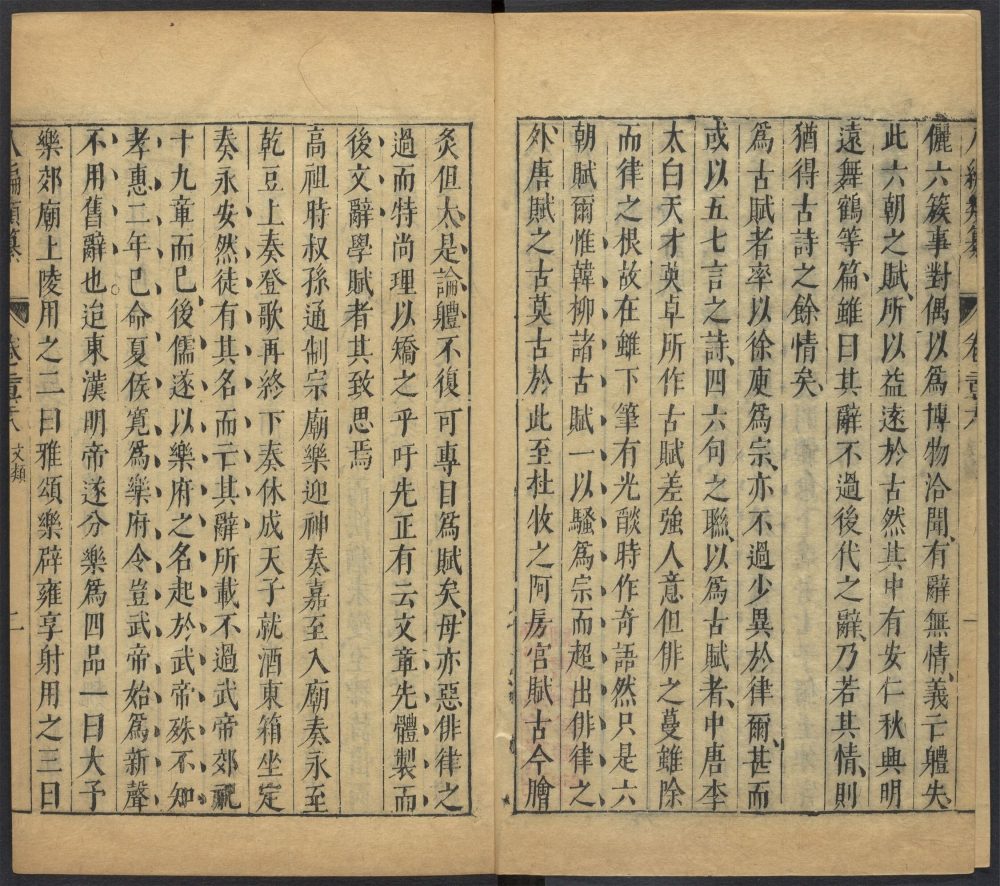 儷六簇事對偶以爲博物洽聞有辭無情義亡體失
此六朝之賦所以益遠於古然其中有安仁秋興明
遠舞鶴等篇雖曰其辭不過後代之辭乃若其情則
猶得古詩之餘情矣
爲古賦者率以徐庾爲宗亦不過少異於律爾甚而
或以五七言之詩四六句之聮以爲古賦者中唐李
太白天才英卓所作古賦差強人意但俳之蔓雖除
而律之根故在雖下筆有光燄時作奇語然只是六
朝賦爾惟韓柳諸古賦一以騷爲宗而超出俳律之
外唐賦之古莫古於此至杜牧之阿房宮賦古今膾
炙但太是論體不復可專目爲賦矣毋亦惡俳律之
過而特尚理以矯之乎吁先正有云文章先體製而
後文辭學賦者其致思焉
高祖時叔孫通制宗廟樂迎神奏嘉至入廟奏永至
乾豆上奏登歌再終下奏休成天子就酒東箱坐定
奏永安然徒有其名而亡其辭所載不過武帝郊祀
十九章而已後儒遂以樂府之名起於武帝殊不知
孝惠二年已命夏侯寬爲樂府令豈武帝始爲新聲
不用舊辭也迨東漢明帝遂分樂爲四品一曰大予
樂郊廟上陵用之二曰雅頌樂辟雍享射用之三曰
八編類纂 文類 二